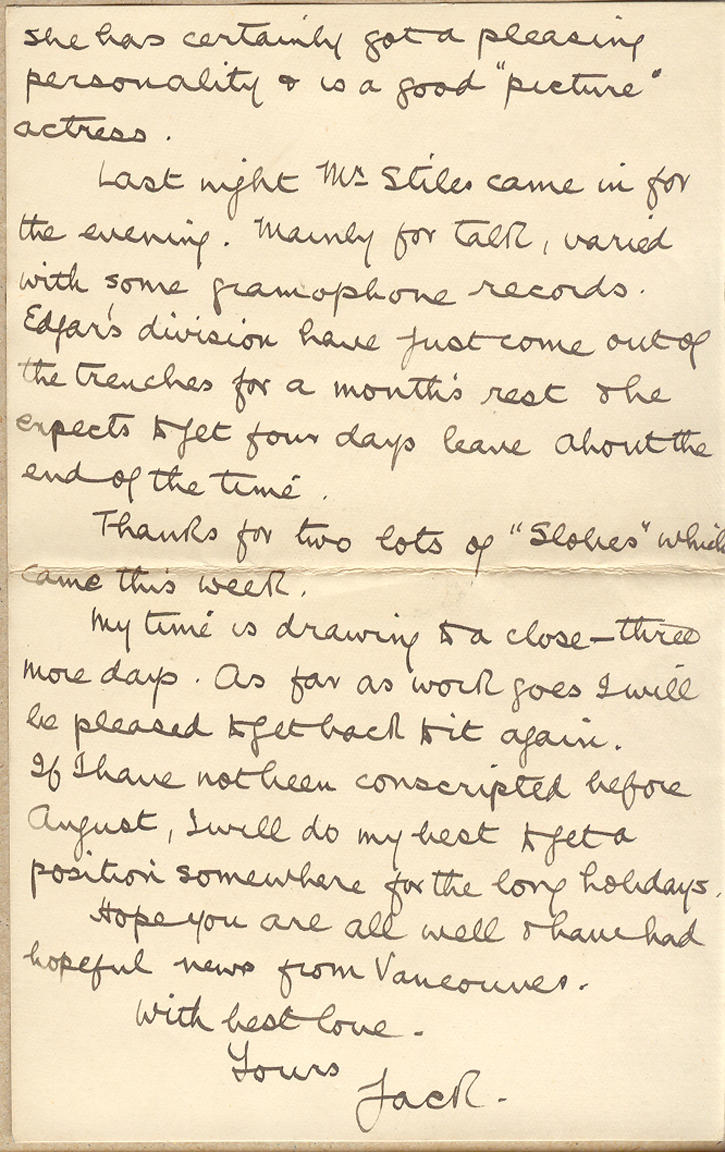 she has certainly got a pleasing
personality & is a good "picture"
actress.
Last night Mr Stiles came in for
the evening. Mainly for talk, varied
with some gramophone records.
Edgar's division have just come out of
the trenches for a month's rest & he
expects to get four days leave about the
end of the time.
Thanks for two lots of "Globes" which
came this week.
My time is drawing to a close – three
more days. As far as work goes I will
be pleased to get back to it again.
If I have not been conscripted before
August, I will do my best to get a
position somewhere for the long holidays.
Hope you are all well & have had
hopeful news from Vancouver.
With best love.
Yours
Jack.